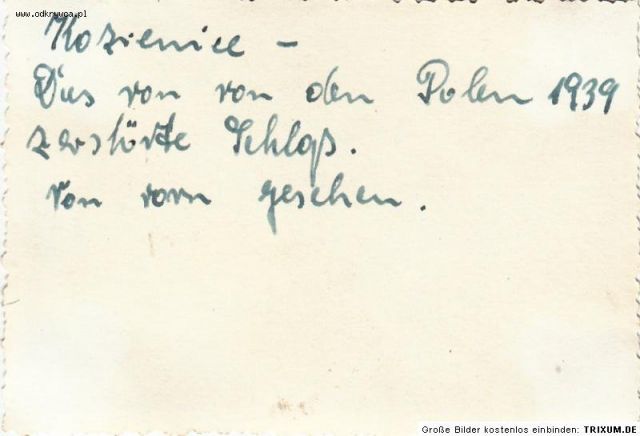 www.odkrywca.pl
Kozienice –
Das von von den Polen 1939
zerstörte Schloß.
Von vorn gesehen.
Große Bilder kostenlos einbinden: TRIXUM.DE